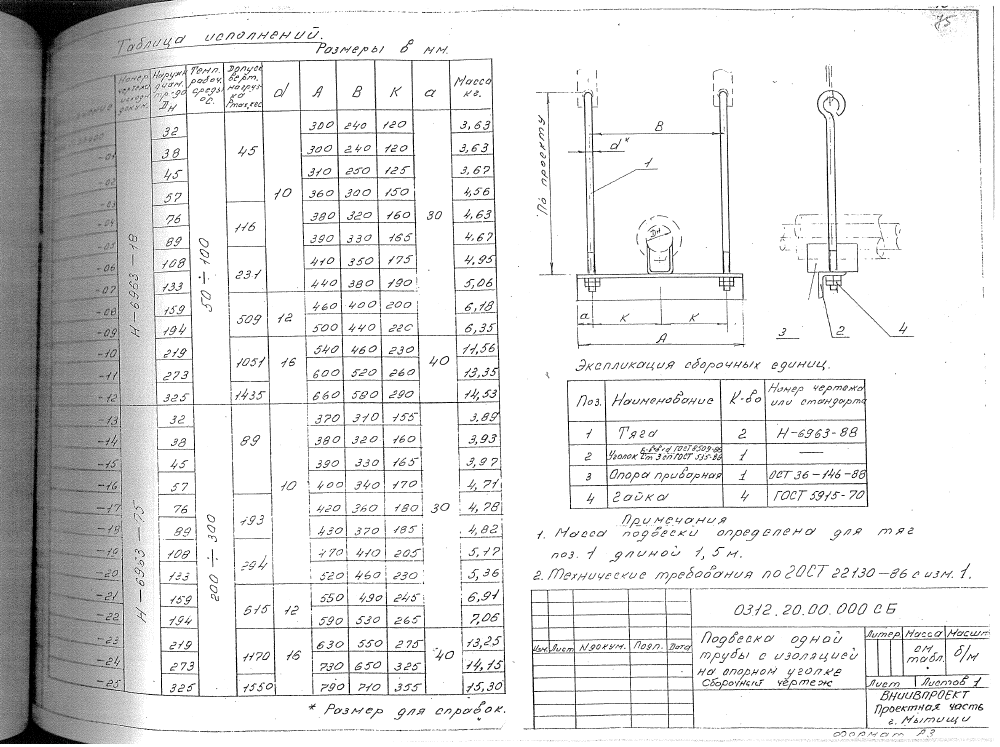 Таблица исполнений.
Размеры в мм.
Номер чертежа исход. докум.
Наружн. диам. тр-да Dн
Темп. рабоч. среды °С.
Допуск. верт. нагрузка Pmax, кгс
d
А
В
К
а
Масса кг.
Н-6963-18
50÷100
32 45 10 300 240 120 30 3,63
-01 38 300 240 120 3,63
-02 45 310 250 125 3,67
-03 57 360 300 150 4,56
-04 76 116 380 320 160 4,63
-05 89 390 330 165 4,67
-06 108 231 410 350 175 4,95
-07 133 440 380 190 5,06
-08 159 509 12 460 400 200 6,18
-09 194 500 440 220 6,35
-10 219 1051 16 540 460 230 40 11,56
-11 273 600 520 260 13,35
-12 325 1435 660 580 290 14,53
Н-6963-75
200÷300
-13 32 89 10 370 310 155 30 3,89
-14 38 380 320 160 3,93
-15 45 390 330 165 3,97
-16 57 400 340 170 4,71
-17 76 193 420 360 180 4,78
-18 89 430 370 185 4,82
-19 108 294 470 410 205 5,17
-20 133 520 460 230 5,36
-21 159 615 12 550 490 245 6,91
-22 194 590 530 265 7,06
-23 219 1170 16 630 550 275 40 13,25
-24 273 730 650 325 14,15
-25 325 1550 790 710 355 15,30
* Размер для справок.
75
По проекту
В
d*
1
Dн
а
К
К
А
3
2
4
Экспликация сборочных единиц.
Поз. Наименование К-во Номер чертежа или стандарта
1 Тяга 2 Н-6963-88
2 Уголок ГОСТ 8509-86 Ст 3 сп ГОСТ 535-88 1 —
3 Опора приварная 1 ОСТ 36-146-88
4 Гайка 4 ГОСТ 5915-70
Примечания
1. Масса подвески определена для тяг
поз. 1 длиной 1,5 м.
2. Технические требования по ГОСТ 22130-86 с изм. 1.
0312.20.00.000 СБ
Изм. Лист № докум. Подп. Дата
Подвеска одной
трубы с изоляцией
на опорном уголке
Сборочный чертеж
Литер. Масса Масшт.
см. табл.
б/м
Лист Листов 1
ВНИИВПРОЕКТ
Проектная часть
г. Мытищи
Формат А3